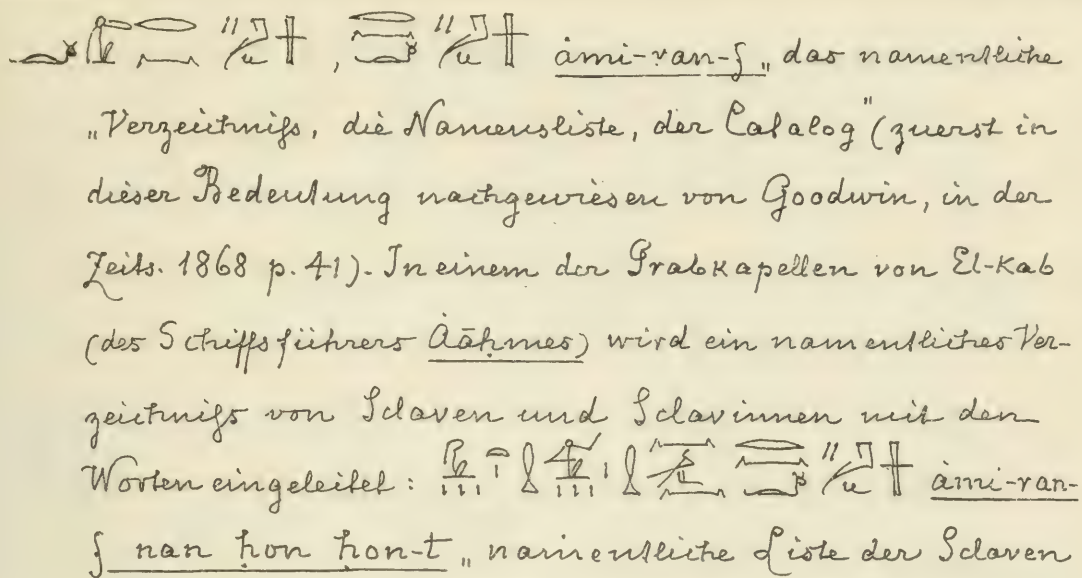 ȧmi-ran-f „das namentliche
„Verzeichniſs, die Namensliste, der Catalog" (zuerst in
dieser Bedeutung nachgewiesen von Goodwin, in der
Zeits. 1868 p. 41). In einem der Grabkapellen von El-Kab
(des Schiffsführers Ȧāḥmes) wird ein namentliches Ver-
zeichniſs von Sclaven und Sclavinnen mit den
Worten eingeleitet: ȧmi-ran-
f nan ḥon ḥon-t „namentliche Liste der Sclaven